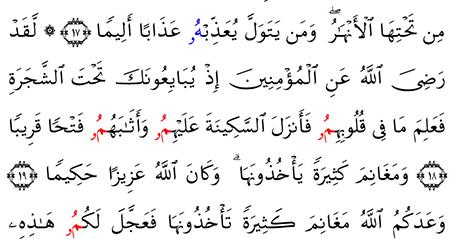 مِن تَحْتِهَا ٱلْأَنْهَـٰرُ ۖ وَمَن يَتَوَلَّ يُعَذِّبْهُۥ عَذَابًا أَلِيمًا ۝١٧ ۞ لَّقَدْ
رَضِىَ ٱللَّهُ عَنِ ٱلْمُؤْمِنِينَ إِذْ يُبَايِعُونَكَ تَحْتَ ٱلشَّجَرَةِ
فَعَلِمَ مَا فِى قُلُوبِهِمُۥ فَأَنزَلَ ٱلسَّكِينَةَ عَلَيْهِمُۥ وَأَثَـٰبَهُمُۥ فَتْحًا قَرِيبًا
۝١٨ وَمَغَانِمَ كَثِيرَةً يَأْخُذُونَهَا ۗ وَكَانَ ٱللَّهُ عَزِيزًا حَكِيمًا ۝١٩
وَعَدَكُمُ ٱللَّهُ مَغَانِمَ كَثِيرَةً تَأْخُذُونَهَا فَعَجَّلَ لَكُمُۥ هَـٰذِهِۦ